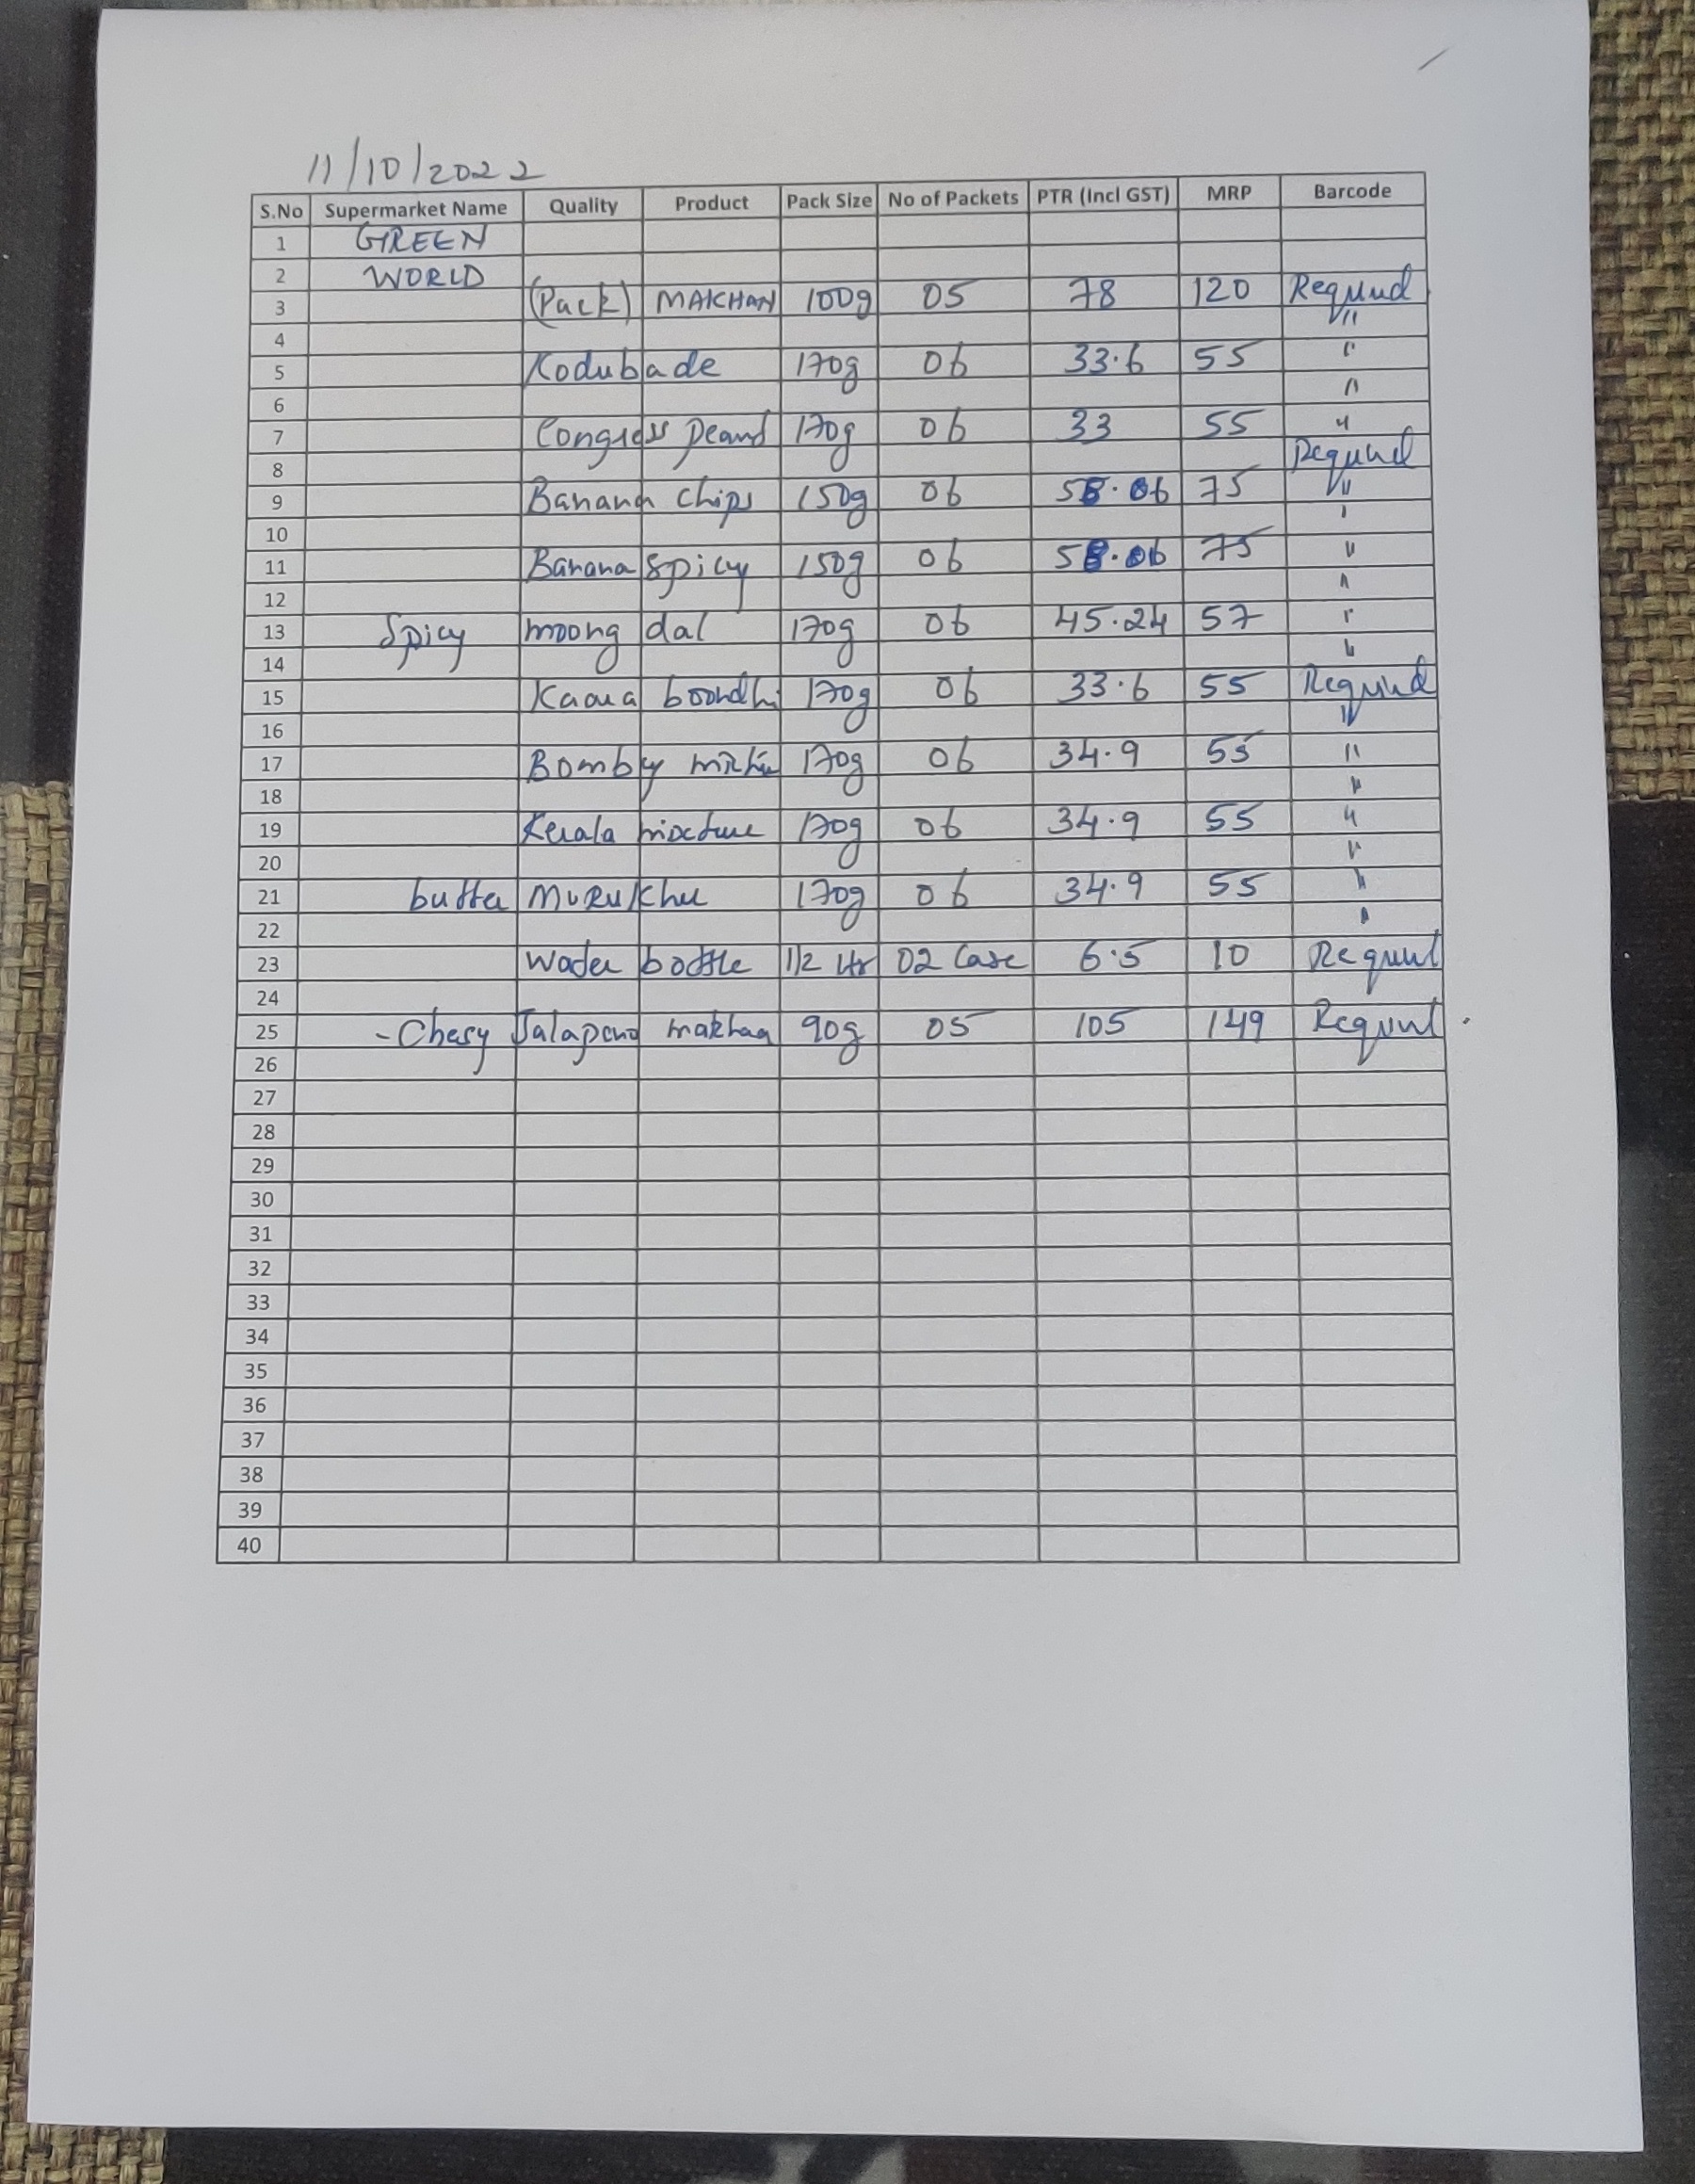 11/10/2022
S.No Supermarket Name Quality Product Pack Size No of Packets PTR (Incl GST) MRP Barcode
1 GREEN
2 WORLD
3 (Pack) MAKHAN 100g 05 78 120 Required
4 "
5 Kodubade 170g 06 33.6 55 "
6 "
7 Congress Peanut 170g 06 33 55 "
8 Required
9 Banana chips 150g 06 58.06 75 "
10 "
11 Banana spicy 150g 06 58.06 75 "
12 "
13 Spicy moong dal 170g 06 45.24 57 "
14 "
15 Kaara boondhi 170g 06 33.6 55 Required
16 "
17 Bomby mixture 170g 06 34.9 55 "
18 "
19 Kerala mixture 170g 06 34.9 55 "
20 "
21 butter MURUKhu 170g 06 34.9 55 "
22 "
23 Water bottle 1/2 ltr 02 Case 6.5 10 Required
24
25 - Chesy Jalapeno makhana 90g 05 105 149 Required
26
27
28
29
30
31
32
33
34
35
36
37
38
39
40